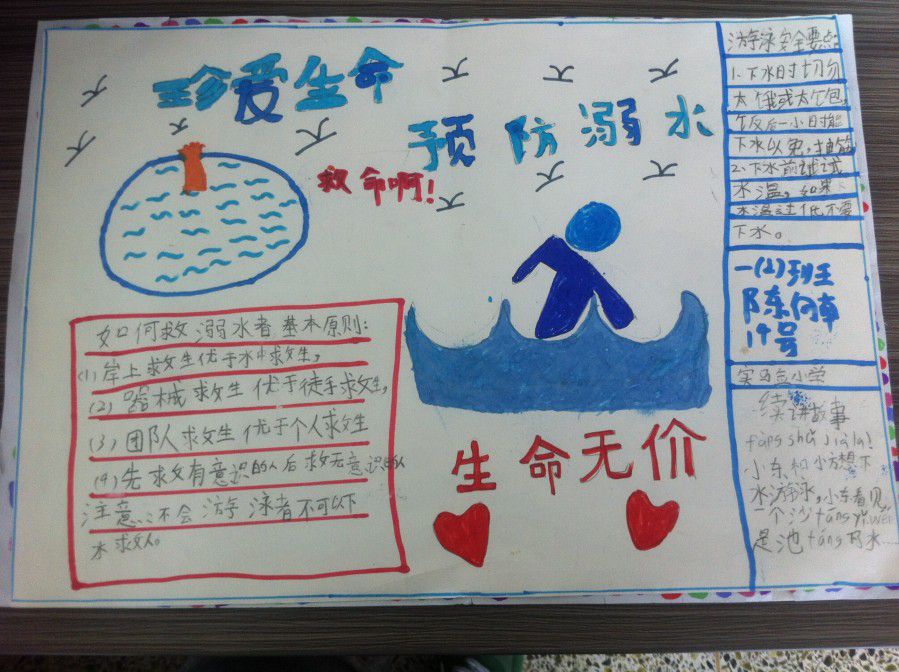 珍爱生命
预防溺水
救命啊!
如何救溺水者基本原则:
(1)岸上救生优于水中救生,
(2)器械救生优于徒手救生,
(3)团队救生优于个人救生
(4)先救有意识的人后救无意识的人
注意:不会游泳者不可以下
水救人。
生命无价
游泳安全要点:
1.下水时切勿
太饿或太饱,
饭后一小时能
下水以免,抽筋
2.下水前试试
水温,如果
水温过低不要
下水。
一(2)班
陈向
19号
小学
续讲故事
fàng shǔ jià la!
小东和小方想下
水游泳,小东看见
一个沙táng yǐ wéi
是池táng 的水……